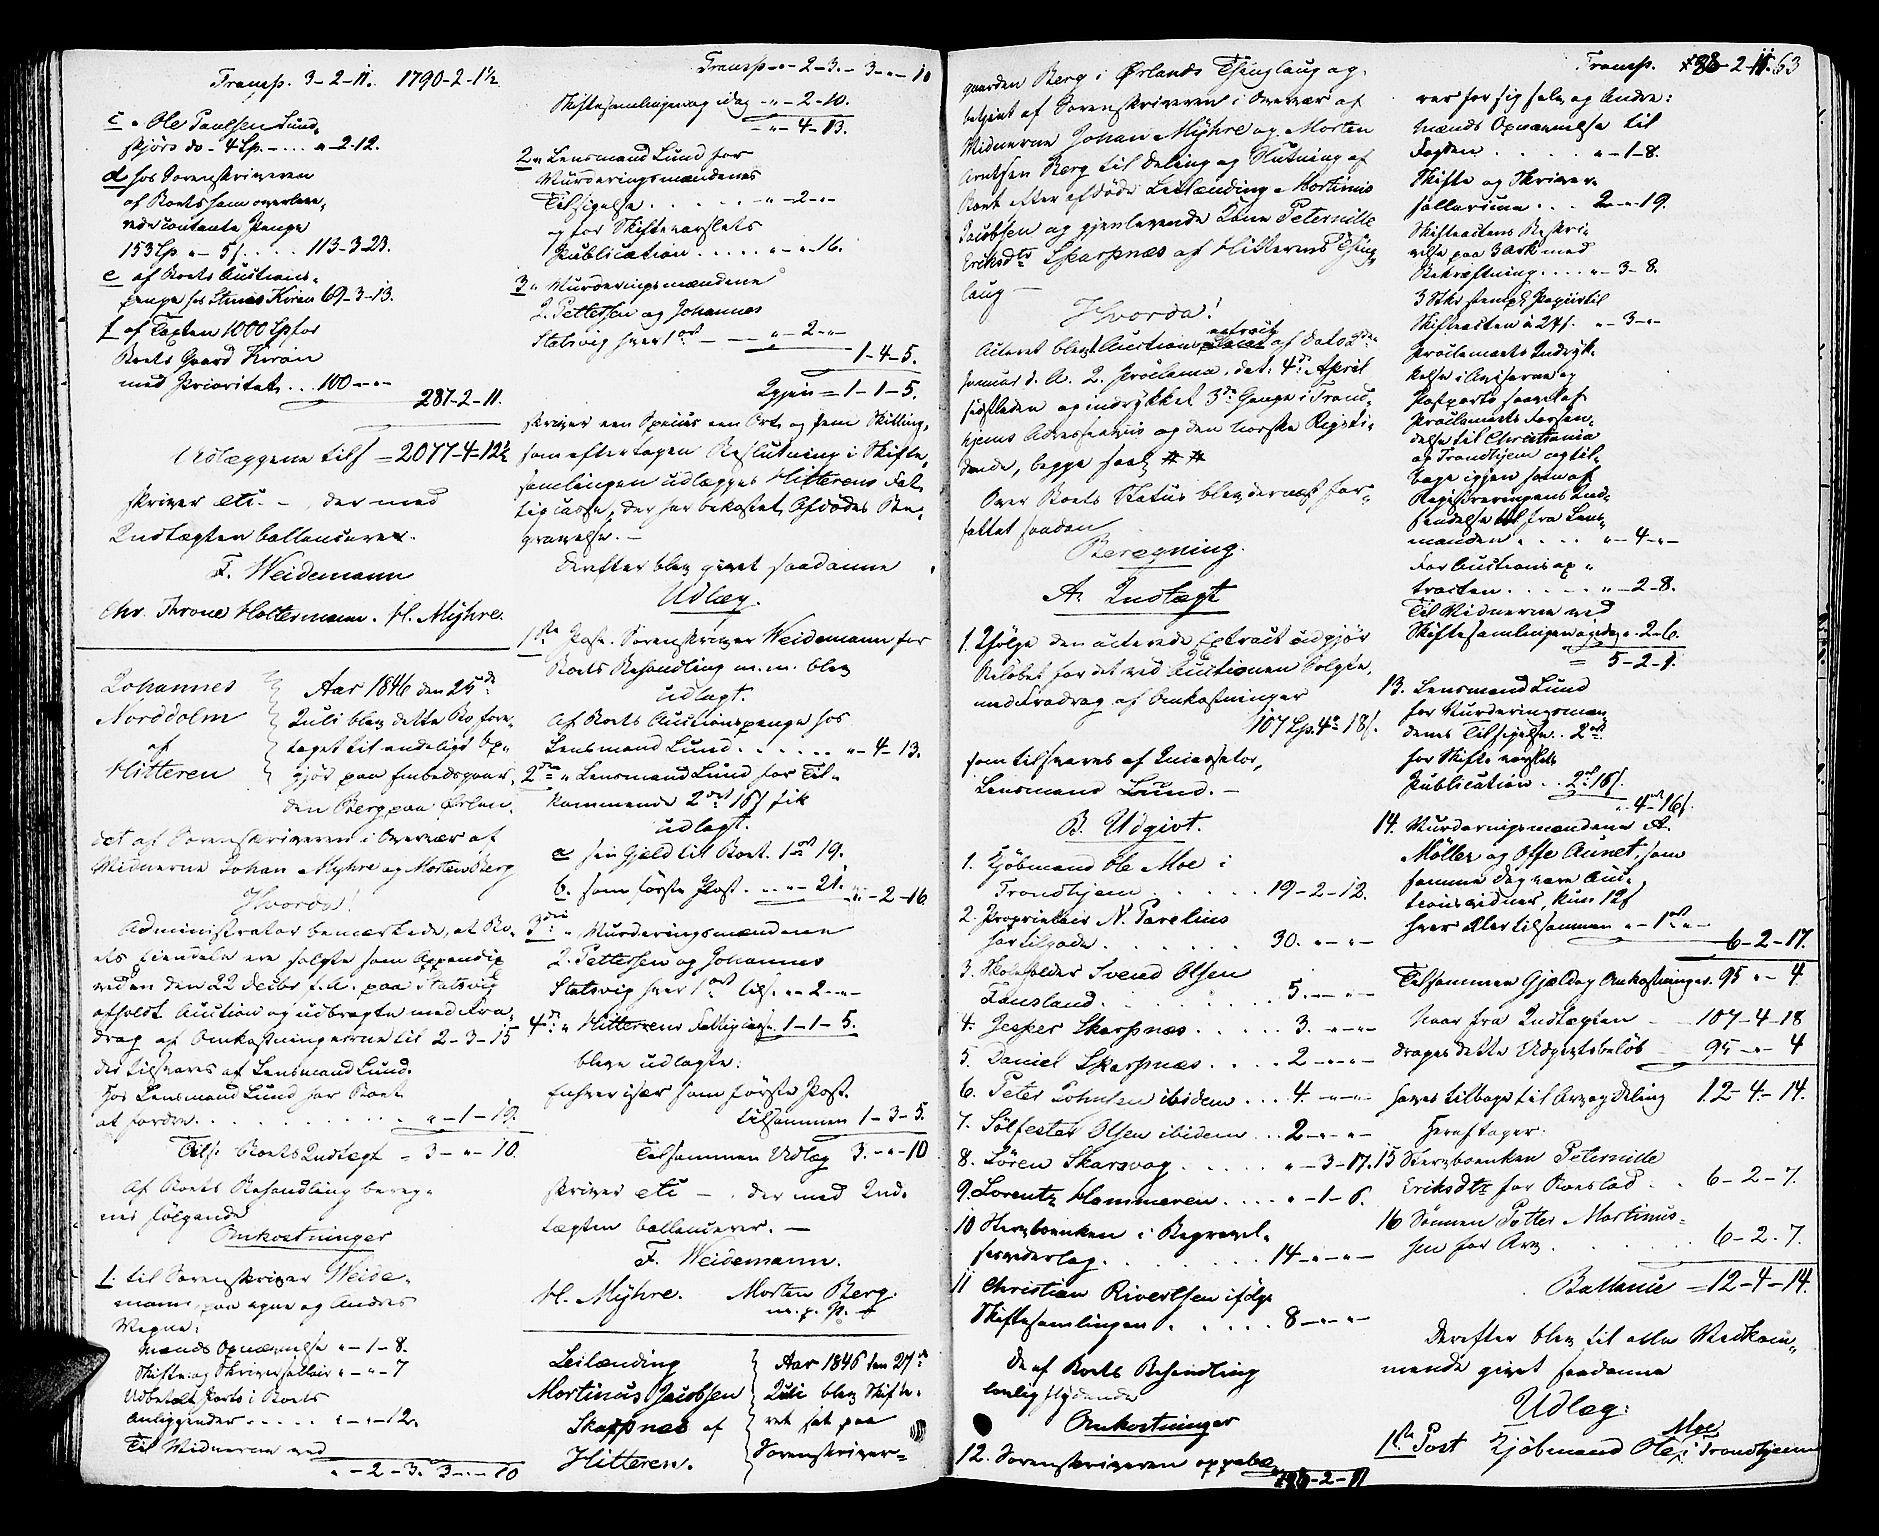 Transp. 3-2-11. 1790-2-1½
c " Ole Paulsen Lund,
skjørs do - 4 Sp. - ... " -2-12.
d hos Sorenskriveren
af Boets ham overleve,
rede contante Penge
153 Sp " - 5 s. ... 113-3-23.
e af Boets Auctions-
penge hos Kiran 69-3-13.
f af Taxten 1000 Sp for
Boets Gaard Kiran
med Prioritet ... 100-"-"
287-2-11.
Udlæggene tils = 2077-4-12½
skriver etc. - , der med
Indtægten ballancerer.
F. Weidemann
Chr. Throne Holtermann. H. Myhre.
Johannes
Norddolm
af
Hitteren
Aar 1846 den 25de
Juli blev dette Bo fore-
taget til endeligt Op-
gjør paa Embedsgaar,
den Berg paa Ørlan,
det af Sorenskriveren i Overvær af
Vidnerne Johan Myhre og Morten Berg
Hvorda!
Administrator bemærkede, at Bo-
ets Eiendele ere solgte som Appendix
ved en den 22 Decbr f. A. paa Stabsvig
afholdt Auction og udbragte med Fra-
drag af Omkostningerne til 2-3-15
der tilsvares af Lensmand Lund.
Hos Lensmand Lund har Boet
at fordre. . . . . . . . " -1-19.
Tils: Boets Indtægt = 3-"-10.
Af Boets Behandling bereg-
nes følgende
Omkostninger
1. til Sorenskriver Weide-
mann paa egne og Andres
Vegne:
Mænds Opnævnelse " -1-8.
Skifte og Skriversallair " -"-7
Udbetalt Porto i Boets
Anliggender . . . . . " -"-12.
Til Vidnerne ved
" -2-3. 3-"-10
Transp - " - 2-3. - 3-"-10
Skiftesamlingen og idag - " -2-10.
= " -4-13.
2 " Lensmand Lund for
Vurderingsmændenes
Tilsigelse . . . . . - " -2-"
og for Skiftevarslets
Publication . . . . . " - " -16.
3 " Vurderingsmændene
J. Pettersen og Johannes
Stabsvig hver 1 ort — — " -2-"
1-4-5.
Igjen = 1-1-5.
skriver een Species een Ort og fem Skilling,
som efter tagen Beslutning i Skifte,
samlingen udlægges Hitterens Fat,
tigcasse, der har bekostet Afdødes Be-
gravelse. -
Derefter blev givet saadanne
Udlæg.
1ste Post. Sorenskriver Weidemann for
Boets Behandling m. m. blev
udlagt.
Af Boets Auctionspenge hos
Lensmand Lund . . . . . . " -4-13.
2den " Lensmand Lund for Til-
kommende 2 ort 16 s fik
udlagt.
a sin Gjeld til Boet. 1 ort 19.
b. som første Post . . . " - 21. " -2-16
3die " Vurderingsmændene
J. Pettersen og Johannes
Stabsvig hver 1 ort tils. " -2-"
4de " Hitterens Fattigcasse 1-1-5.
bleve udlagte:
enhver især som første Post.
tilsammen 1-3-5.
Tilsammen Udlæg 3-"-10
skriver etc - , der med Ind-
tægten ballancerer. —
F. Weidemann.
H. Myhre. Morten Berg.
m. p. P.
Leilænding
Martinus Jacobsen
Skarpnes af
Hitteren.
Aar 1846 den 27de
Juli blev Skifte-
ret sat paa
Sorenskriver-
gaarden Berg i Ørlands Thinglaug og
betjent af Sorenskriveren i Overvær af
Vidnerne Johan Myhre og Morten
Arntsen Berg til Deling og Slutning af
Boet efter afdøde Leilænding Mortinus
Jacobsen og gjenlevende Kone Peternille
Eriksdtr Skarpnæs af Hitterens Thing,
laug —
Hvorda!
Acteret blev 1 Auctions extract af dato 2den
Januar d. A. 2. Proclama, dat: 4de April
sidstleden og indrykket 3de Gange i Trond-
hjems Adresseavis og den norske Rigsti-
dende, begge saal ## ##
Over Boets Status blev dernæst for-
fattet saadan
Beregning.
A. Indtægt
1. Ifølge den acterede Extract udgjør
Beløbet for det ved Auctionen Solgte,
med Fradrag af Omkostninger
107 Sp. 4 ort 18 s.
som tilsvares af Incassator,
Lensmand Lund. —
B. Udgivt.
1. Kjøbmand Ole Moe i
Trondhjem . . . . . . 19-2-12.
2. Proprietair N. Parelius
. . . . . . . 30. "-"
3. Skoleholder Svend Olsen
Fansland . . . . . . . 5. "-"
4. Jesper Skarpnæs . . . . . 3. -"-"
5. Daniel Skarpnæs . . . . 2 -"-"
6. Peter Johnsen ibidem . . . 4. -"-"
7. Sølfester Olsen ibidem . . . 2 -"-"
8. Søren Skarsvog . . . . . " -3-17.
9. Lorentz Hammeren . . . . " -1-6.
10 Stervboenken i Begravel-
sesvederlag . . . . . . 14 -"-"
11 Christian Rivertsen ifølge
Skiftesamlingen . . . . . 8 -"-"
De af Boets Behandling
lovlig flydende
Omkostninger
12. Sorenskriveren oppebæ
88-2-11
Transp. 88-2-11. 63
rer for sig selv og Andre:
Mænds Opnævnelse til
Fogden . . . . . " -1-8.
Skifte og Skriver-
sallarium . . . 2-"-19.
Skifteactens Beskri-
velse paa 3 Ark med
Bekræftning . . . . " -3-8.
3 Stkr stempl. Papiir til
Skifteacten a 24 s. " -3-"
Proclamaets Indryk-
kelse i Aviserne og
Postporto saavel af
Proclamaets Forsen-
delse til Christiania
og Trondhjem og til-
bage igjen som af
Registreringens Ind-
sendelse fra Lens-
manden . . . . . " -4-"
For Auctions op -
tracten . . . . . . " -2-8.
Til Vidnerne ved
Skiftesamlingen og idag " -2-6.
= 5-2-1.
13. Lensmand Lund
for Vurderingsmæn
denes Tilsigelse . . 2 ort
for Skifte varslets
Publication . . 2 ort 16 s.
" 4 ort 16 s.
14. Vurderingsmændene A.
Møller og Offe Aunet, som
samme Dag vare Auc-
tionsvidner, kun 12 s
hver eller tilsammen " - 1 ort "
6-2-17.
Tilsammen Gjæld og Omkostninger. 95 "-4
Naar fra Indtægten — 107-4-18
drages dette Udgivtsbeløb — 95-"-4
haves tilbage til Arv og Deling 12-4-14.
Heraf tager:
15 Stervboenken Peternille
Eriksdtr for Boeslod . . 6-2-7.
16 Sønnen Petter Martinus-
sen for Arv . . . . . . 6-2-7.
Ballance = 12-4-14.
Derefter blev til alle Vedkom-
mende givet saadanne
Udlæg:
1ste Post Kjøbmand Ole Moe i Trondhjem